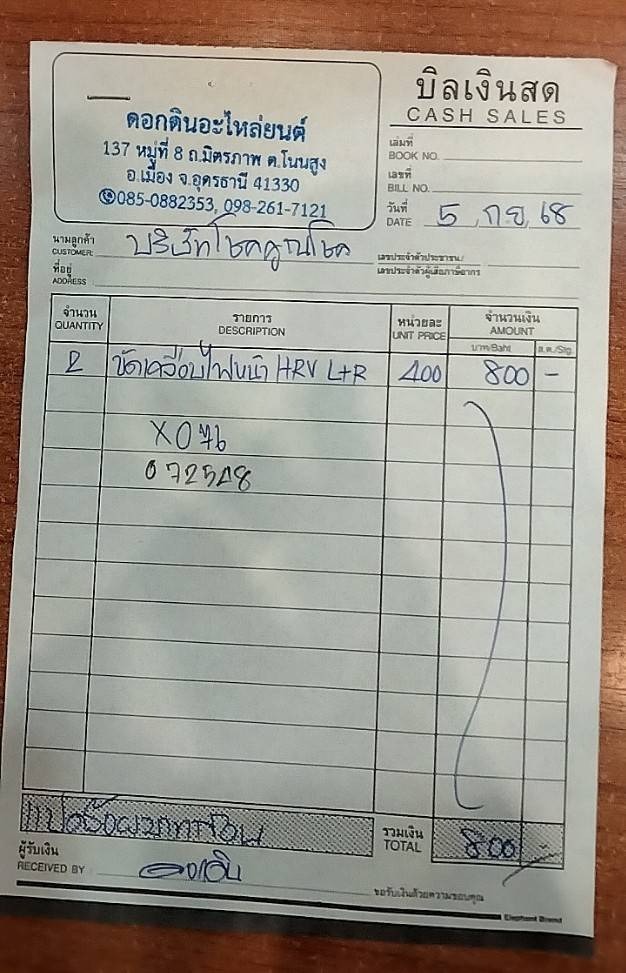 บิลเงินสด
CASH SALES
ดอกดินอะไหล่ยนต์
137 หมู่ที่ 8 ถ.มิตรภาพ ต.โนนสูง
อ.เมือง จ.อุดรธานี 41330
085-0882353, 098-261-7121
เล่มที่
BOOK NO.
เลขที่
BILL NO.
วันที่
DATE 5 ก.ย. 68
นามลูกค้า
CUSTOMER บริษัทโชคคูณโชค
เลขประจำตัวประชาชน/
เลขประจำตัวผู้เสียภาษีอากร
ที่อยู่
ADDRESS
จำนวน รายการ หน่วยละ จำนวนเงิน
QUANTITY DESCRIPTION UNIT PRICE AMOUNT
บาท/Baht ส.ต./Stg.
2 ขัดเคลือบไฟหน้า HRV L+R 400 800 -
072548
รวมเงิน
TOTAL 800 -
ผู้รับเงิน
RECEIVED BY
ขอรับเงินด้วยความขอบคุณ
Elephant Brand